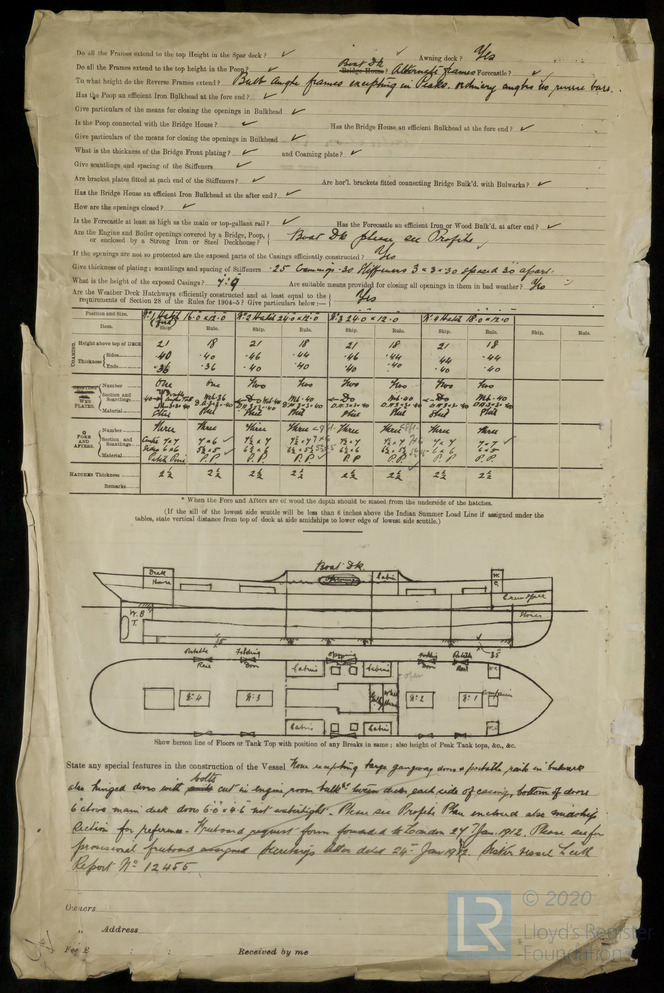 Do all the Frames extend to the top Height in the Spar deck? ✓ Awning deck? Yes
Boat Dk
Do all the Frames extend to the top height in the Poop? ✓ Bridge House? Alternate frames Forecastle? ✓
To what height do the Reverse Frames extend? Bulb Angle frames excepting in Peaks. ordinary angles no reverse bars.
Has the Poop an efficient Iron Bulkhead at the fore end? ✓
Give particulars of the means for closing the openings in Bulkhead ✓
Is the Poop connected with the Bridge House? ✓ Has the Bridge House an efficient Bulkhead at the fore end? ✓
Give particulars of the means for closing the openings in Bulkhead ✓
What is the thickness of the Bridge Front plating? ✓ and Coaming plate? ✓
Give scantlings and spacing of the Stiffeners ✓
Are bracket plates fitted at each end of the Stiffeners? ✓ Are hor'l. brackets fitted connecting Bridge Bulk'd. with Bulwarks? ✓
Has the Bridge House an efficient Iron Bulkhead at the after end? ✓
How are the openings closed? ✓
Is the Forecastle at least as high as the main or top-gallant rail? ✓ Has the Forecastle an efficient Iron or Wood Bulk'd. at after end? ✓
Are the Engine and Boiler openings covered by a Bridge, Poop, or enclosed by a Strong Iron or Steel Deckhouse? Boat Dk please see Profile
If the openings are not so protected are the exposed parts of the Casings efficiently constructed? Yes
Give thickness of plating; scantlings and spacing of Stiffeners .25 Coamings .30 Stiffeners 3 x 3 x .30 spaced 30 apart
What is the height of the exposed Casings? 7'.9 Are suitable means provided for closing all openings in them in bad weather? Yes
Are the Weather Deck Hatchways efficiently constructed and at least equal to the
requirements of Section 28 of the Rules for 1904-5? Give particulars below:— Yes
Position and Size. No 1 Hatch 16.0 x 12.0 No 2 Hatch 24.0 x 12.0 No 3 24.0 x 12.0 No 4 Hatch 18.0 x 12.0
Item. Ship. Rule. Ship. Rule. Ship. Rule. Ship. Rule.
COAMING. Height above top of DECK 21 18 21 18 21 18 21 18
Thickness Sides .40 .40 .46 .44 .46 .44 .44 .44
Ends .36 .36 .40 .40 .40 .40 .40 .40
WEB PLATES. Number One One Two Two Two Two Two Two
Section and Scantlings
Material Steel Steel Steel Steel Steel Steel Steel Steel
FORE AND AFTERS. Number Three Three Three Three Three Three Three Three
Section and Scantlings Centre 7 x 7
Material Pitch Pine P.P P.P. P.P.
HATCHES Thickness 2½ 2½ 2½ 2½ 2½ 2½ 2½ 2½
Remarks
* When the Fore and Afters are of wood the depth should be stated from the underside of the hatches.
(If the sill of the lowest side scuttle will be less than 6 inches above the Indian Summer Load Line if assigned under the
tables, state vertical distance from top of deck at side amidships to lower edge of lowest side scuttle.)
Boat Dk.
Deck House
Openings
Cabin
W.C.
Crew Space
W.B T.
Stores
Portable Rail Folding Door Folding Door Portable Rail
Cabins Cabins
No 4 No 3 No 2 No 1
Cabins Cabins
Show hereon line of Floors or Tank Top with position of any Breaks in same; also height of Peak Tank tops, &c., &c.
State any special features in the construction of the Vessel None excepting large gangway doors & portable rails in bulwark
bolts
also hinged doors with cut in engine room bulkd between decks each side of casing, bottom of doors
6" above main deck doors 6.0 x 4.6 not watertight. Please see Profile Plan enclosed also midship
Section for reference. Freeboard request form forwarded to London 27 Jan. 1912. Please see for
provisional freeboard assigned Secretarys letter dated 24th Jan 1912. Sister Vessel Leith
Report No 12455
Owners
" Address
Fee £ Received by me
LR
© 2020
Lloyd's Register
Foundation